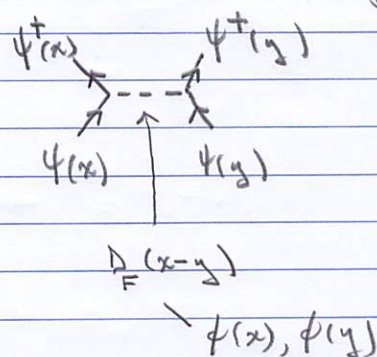 ψ†(x) ψ†(y)
ψ(x) ψ(y)
D_F (x-y)
ϕ(x), ϕ(y)